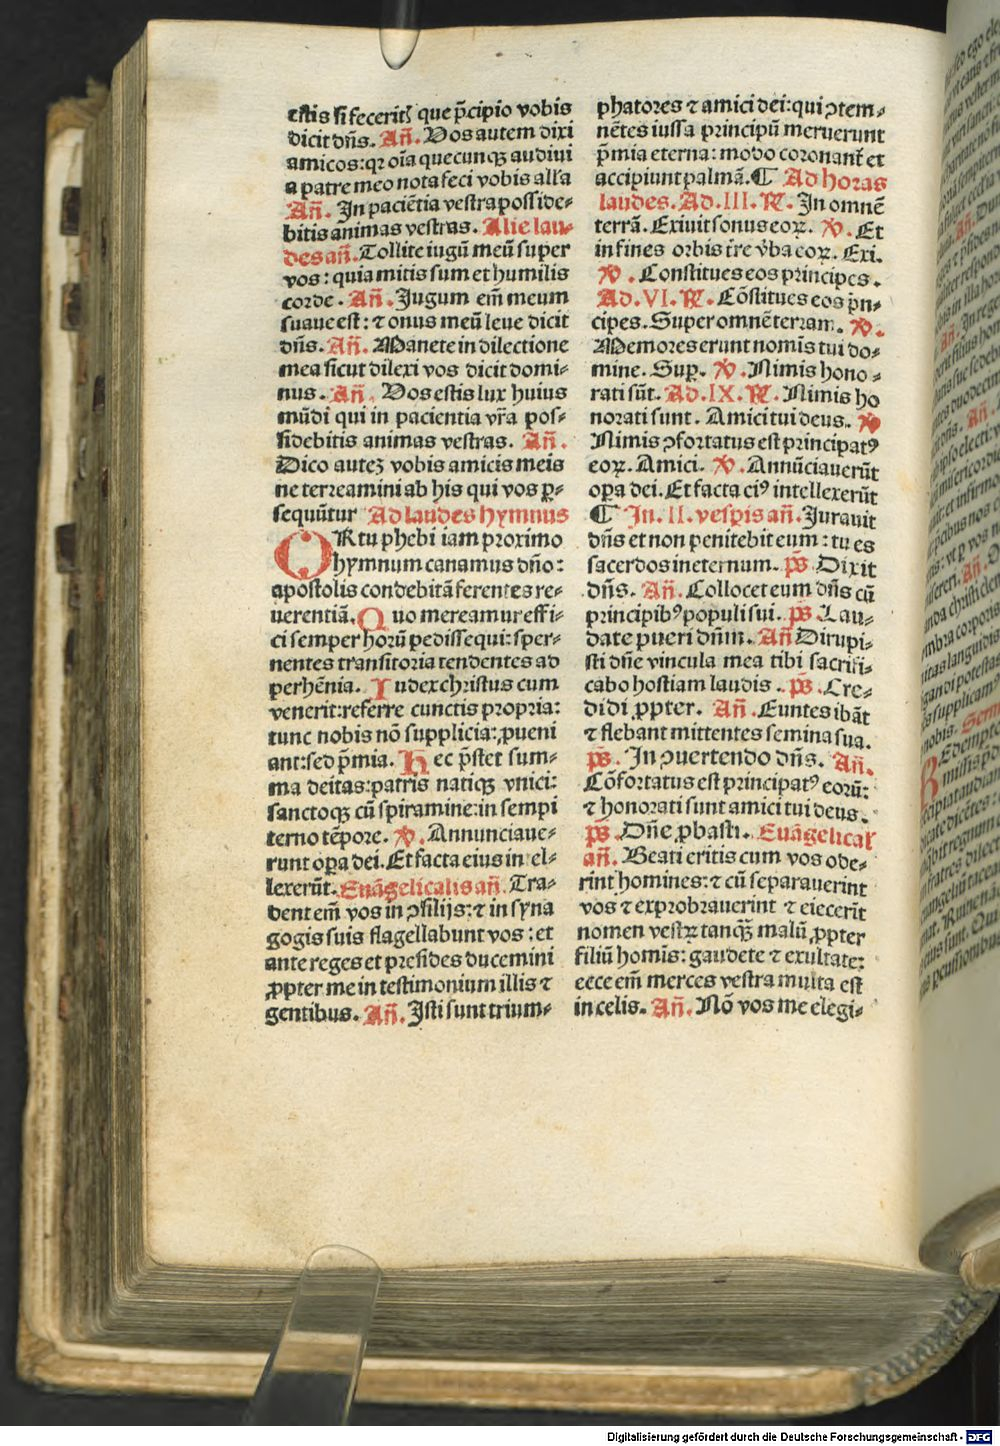 estis si feceritꝭ que p̄cipio vobis
dicit dn̄s. Añ. Vos autem dixi
amicos: qꝛ oīa quecunqꝫ audiui
a patre meo nota feci vobis all'a
Añ. In paciētia vestra posside⸗
bitis animas vestras. Alie lau⸗
des añ. Tollite iugū meū super
vos: quia mitis sum et humilis
corde. Añ. Jugum em̄ meum
suaue est: ⁊ onus meū leue dicit
dn̄s. Añ. Manete in dilectione
mea sicut dilexi vos dicit domi⸗
nus. Añ. Vos estis lux huius
mūdi qui in pacientia vr̄a pos⸗
sidebitis animas vestras. Añ.
Dico auteꝫ vobis amicis meis
ne terreamini ab his qui vos ꝑ⸗
sequūtur Ad laudes hymnus
ORtu phebi iam proximo
hymnum canamus dn̄o:
apostolis condebitā ferentes re⸗
uerentiā. Quo mereamur effi⸗
ci semper horū pedissequi: sper⸗
nentes transitoria tendentes ad
perhēnia. Iudex christus cum
venerit: referre cunctis propria:
tunc nobis nō supplicia: ꝓueni
ant: sed p̄mia. Hec p̄stet sum⸗
ma deitas: patris natiqꝫ vnici:
sanctoqꝫ cū spiramine: in sempi
terno tēpore. ℣. Annunciaue⸗
runt oꝑa dei. Et facta eius intel⸗
lexerūt. Euāgelicalis añ. Tra⸗
dent em̄ vos in ꝯsilijs: ⁊ in syna
gogis suis flagellabunt vos: et
ante reges et presides ducemini
ꝓpter me in testimonium illis ⁊
gentibus. Añ. Isti sunt trium⸗
phatores ⁊ amici dei: qui ꝯtem⸗
nētes iussa principū meruerunt
p̄mia eterna: modo coronant̄ et
accipiunt palmā. ¶ Ad horas
laudes. Ad. III. ℟. In omnē
terrā. Exiuit sonus eoꝝ. ℣. Et
in fines orbis tr̄re v̄ba eoꝝ. Exi.
℣. Constitues eos principes.
Ad. VI. ℟. Cōstitues eos p̄n⸗
cipes. Super omnē terram. ℣.
Memores erunt nomīs tui do⸗
mine. Suꝑ. ℣. Nimis hono⸗
rati sūt. Ad. IX. ℟. Nimis ho
norati sunt. Amici tui deus. ℣
Nimis ꝯfortatus est principatꝰ
eoꝝ. Amici. ℣. Annūciauerūt
oꝑa dei. Et facta eiꝰ intellexerūt
¶ In. II. vesꝑis añ. Jurauit
dn̄s et non penitebit eum: tu es
sacerdos in eternum. p̄s. Dixit
dn̄s. Añ. Collocet eum dn̄s cū
principibꝰ populi sui. p̄s Lau⸗
date pueri dn̄m. Añ Dirupi⸗
sti dn̄e vincula mea tibi sacrifi⸗
cabo hostiam laudis. p̄s. Cre⸗
didi ꝓpter. Añ. Euntes ibāt
⁊ flebant mittentes semina sua.
p̄s. In ꝯuertendo dn̄s. Añ.
Cōfortatus est principatꝰ eorū:
⁊ honorati sunt amici tui deus.
p̄s. Dn̄e ꝓbasti. Euāgelical'
añ. Beati eritis cum vos ode⸗
rint homines: ⁊ cū separauerint
vos ⁊ exprobrauerint ⁊ eiecerīt
nomen vestrꝫ tanqꝫ̄ malū ꝓpter
filiū homīs: gaudete ⁊ exultate:
ecce em̄ merces vestra multa est
in celis. Añ. Nō vos me elegi⸗
Digitalisierung gefördert durch die Deutsche Forschungsgemeinschaft - DFG